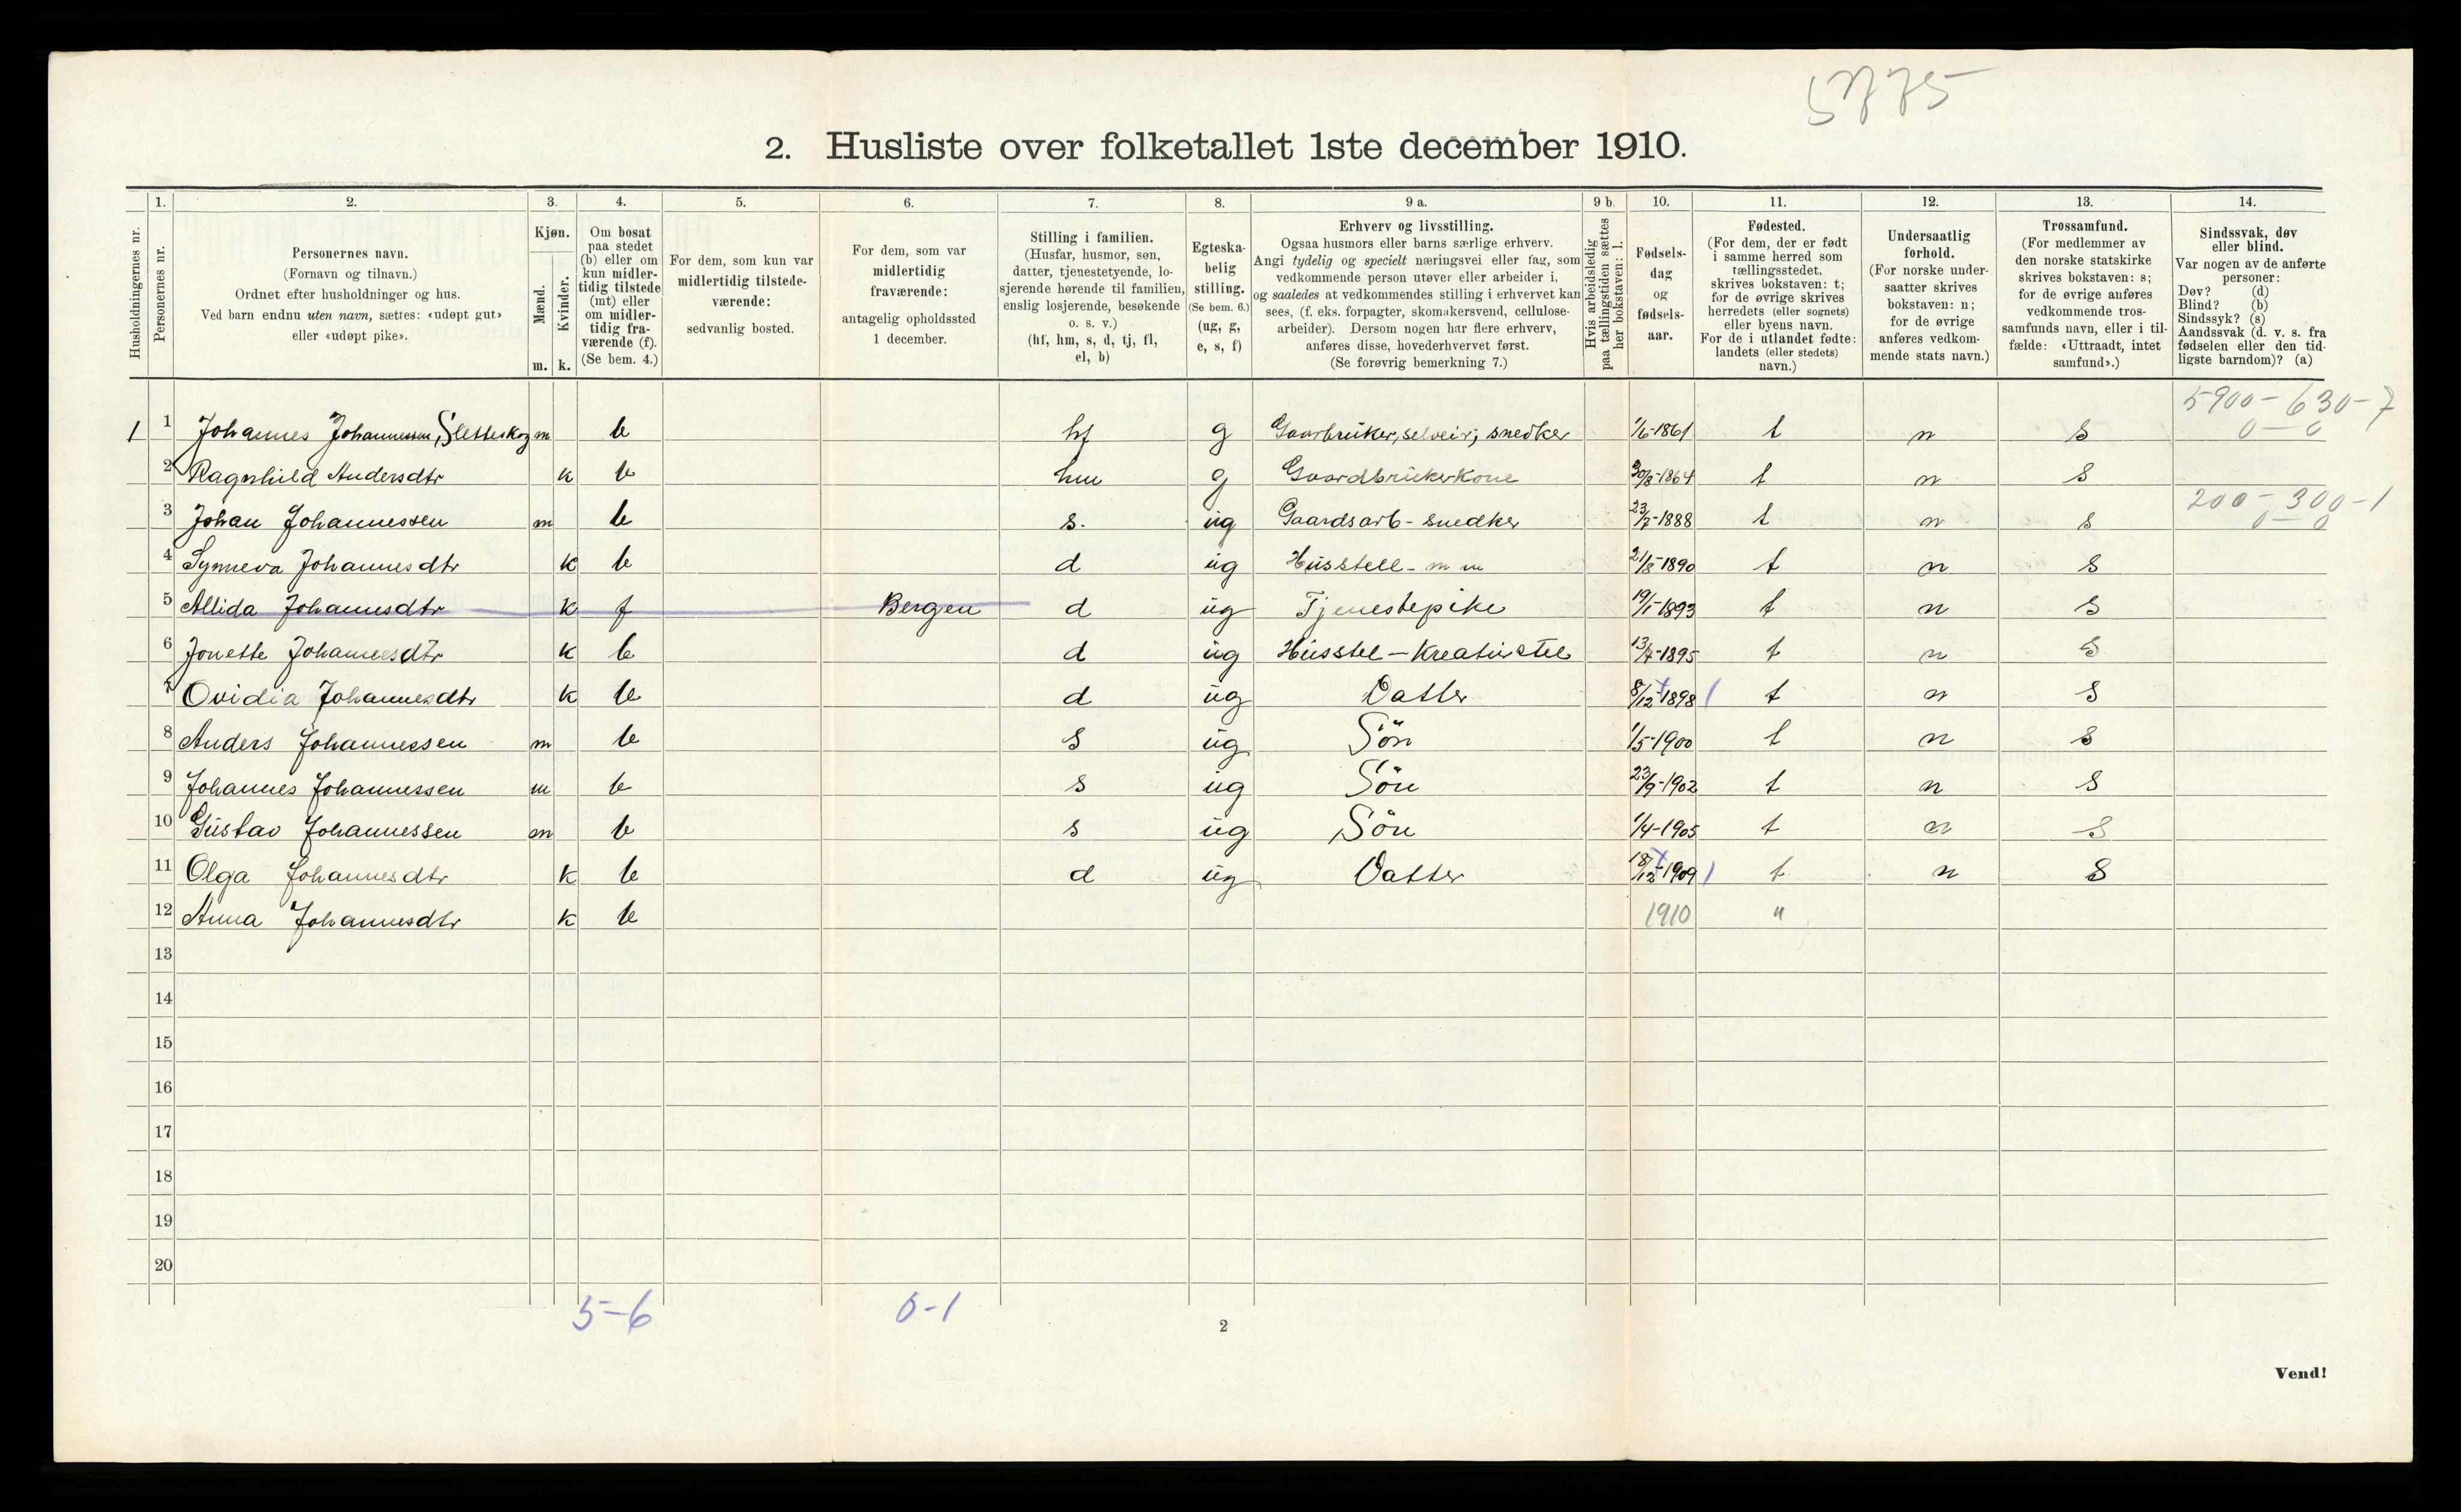 5775
2. Husliste over folketallet 1ste december 1910.
Husholdningernes nr.
1.
Personernes nr.
2.
Personernes navn.
(Fornavn og tilnavn.)
Ordnet efter husholdninger og hus.
Ved barn endnu uten navn, sættes: «udøpt gut»
eller «udøpt pike».
3.
Kjøn.
Mænd.
Kvinder.
m. k.
4.
Om bosat
paa stedet
(b) eller om
kun midler-
tidig tilstede
(mt) eller
om midler-
tidig fra-
værende (f).
(Se bem. 4.)
5.
For dem, som kun var
midlertidig tilstede-
værende:
sedvanlig bosted.
6.
For dem, som var
midlertidig
fraværende:
antagelig opholdssted
1 december.
7.
Stilling i familien.
(Husfar, husmor, søn,
datter, tjenestetyende, lo-
sjerende hørende til familien,
enslig losjerende, besøkende
o. s. v.)
(hf, hm, s, d, tj, fl,
el, b)
8.
Egteska-
belig
stilling.
(Se bem. 6.)
(ug, g,
e, s, f)
9 a.
Erhverv og livsstilling.
Ogsaa husmors eller barns særlige erhverv.
Angi tydelig og specielt næringsvei eller fag, som
vedkommende person utøver eller arbeider i,
og saaledes at vedkommendes stilling i erhvervet kan
sees, (f. eks. forpagter, skomakersvend, cellulose-
arbeider). Dersom nogen har flere erhverv,
anføres disse, hovederhvervet først.
(Se forøvrig bemerkning 7.)
9 b.
Hvis arbeidsledig
paa tællingstiden sættes
her bokstaven: l.
10.
Fødsels-
dag
og
fødsels-
aar.
11.
Fødested.
(For dem, der er født
i samme herred som
tællingsstedet,
skrives bokstaven: t;
for de øvrige skrives
herredets (eller sognets)
eller byens navn.
For de i utlandet fødte:
landets (eller stedets)
navn.)
12.
Undersaatlig
forhold.
(For norske under-
saatter skrives
bokstaven: n;
for de øvrige
anføres vedkom-
mende stats navn.)
13.
Trossamfund.
(For medlemmer av
den norske statskirke
skrives bokstaven: s;
for de øvrige anføres
vedkommende tros-
samfunds navn, eller i til-
fælde: «Uttraadt, intet
samfund».)
14.
Sindssvak, døv
eller blind.
Var nogen av de anførte
personer:
Døv? (d)
Blind? (b)
Sindssyk? (s)
Aandssvak (d. v. s. fra
fødselen eller den tid-
ligste barndom)? (a)
5900-630-7
0-0
1 1 Johannes Johannessen, Sletteskog m b hf g Gaarbruker, selveir; snedker 1/6-1861 t n s
2 Ragnhild Andersdtr k b hm g Gaardbrukerkone 30/8-1864 t n s
200-300-1
0-0
3 Johan Johannessen m b s. ug Gaardsarb-snedker 23/7-1888 t n s
4 Synneva Johannesdtr k b d ug Husstell-m m 21/8-1890 t n s
5 Allida Johannesdtr k f Bergen d ug Tjenestepike 19/1-1893 t n s
6 Jonette Johannesdtr k b d ug Husstel-Kreaturstel 13/7-1895 t n s
7 Ovidia Johannesdtr k b d ug Datter 8/12-1898 t n s
8 Anders Johannessen m b s ug Sön 1/5-1900 t n s
9 Johannes Johannessen m b s ug Sön 23/9-1902 t n s
10 Gustav Johannessen m b s ug Sön 1/4-1905 t n s
11 Olga Johannesdtr k b d ug Datter 18/12-1909 t n s
12 Anna Johannesdtr k b 1910 "
13
14
15
16
17
18
19
20
5-6 0-1
2
Vend!